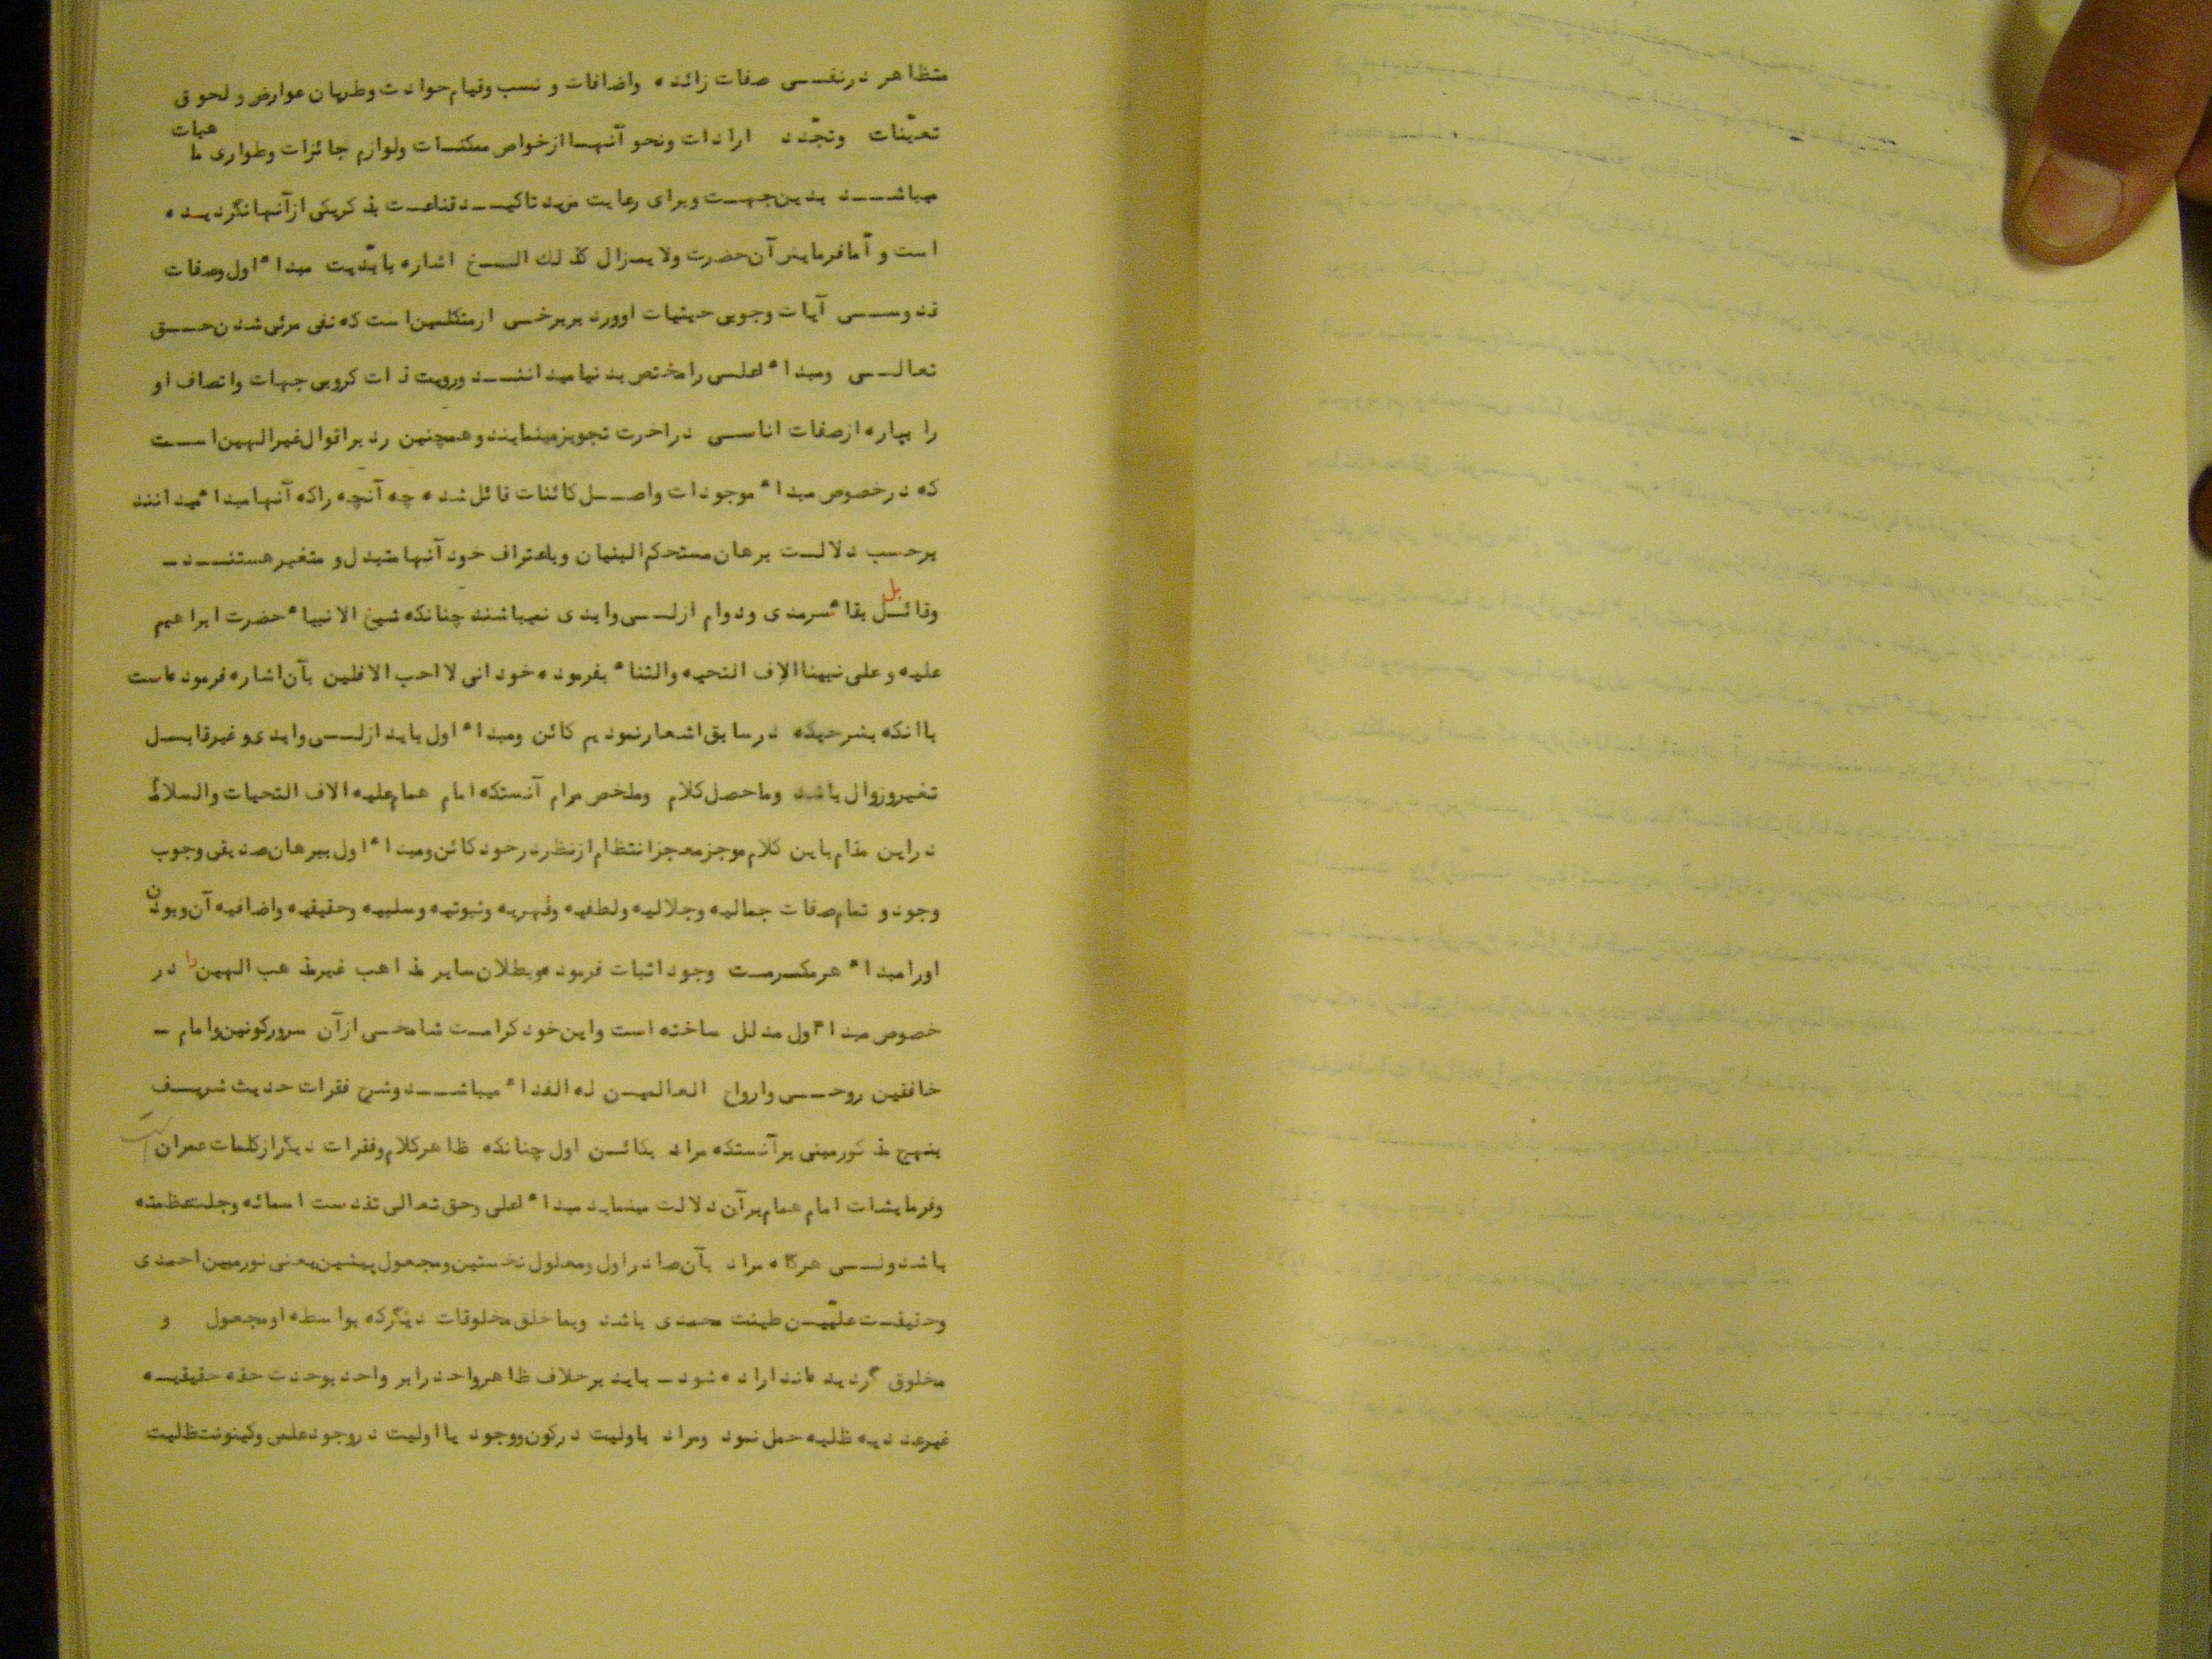 متظاهر درنفسی صفات زائده واضافات و نسب وقیام حوادث وطریان عوارض و لحوق
تعیّنات وتجّدد ارادات ونحو آنهااز خواص ممکنات ولوازم جائزات وطواری ماهیات
میباشد بدین جهت وبرای رعایت مزید تاکید قناعت بذکریکی ازآنهانگردیده
است و اّمافرمایش آن حضرت ولایزال کذلك الخ اشاره بابدّیت مبداء اول وصفات
قدوسی آیات وجوبی حیثیات اوورد بربرخی ازمتکلمین است که نفی مرئی شدن حق
تعالی ومبداء اعلی رامختص بدنیامیدانند ورویت ذات کروبی جهات واتصاف او
را بپاره ازصفات اناسی دراخرت تجویزمینمایندوهمچنین رد براقوال غیرالهین است
که درخصوص مبداء موجودات واصل کائنات قائل شده چه آنچه راکه آنهامبداءمیدانند
برحسب دلالت برهان مستحکم البنیان وباعتراف خود آنهامتبدل و متغیرهستند ـ
وقابل بقاءسرمدی ودوام ازلی وابدی نمیباشند چنانکه شیخ الانبیاء حضرت ابراهیم
علیه وعلی نبیناالاف التحیه والثناء بفرموده خود انی لااحب الافلین بآن اشاره فرموده است
باانکه بشرحیکه درسابق اشعارنمودیم کائن ومبداء اول باید ازلی وابدی وغیرقابل
تغیروزوال باشد وماحصل کلام وملخص مرام آنستکه امام همام علیه الاف التحیات والسلام
دراین مقام باین کلام موجزمعجزانتظام ازنظردرخود کائن ومبداء اول ببرهان صدیقی وجوب
وجود و تمام صفات جمالیه وجلالیه ولطفیه وقهریه وثبوتیه وسلبیه وحقیقیه واضافیه آن وبودن
اورامبداء هرمکرمت وجود اثبات فرموده وبطلان سایر مذاهب غیرمذهب الهین را در
خصوص مبداء اول مدلل ساخته است واین خود کرامت شامخی ازآن سرورکونین وامام ـ
خافقین روحی وارواح العالمین له الفداء میباشد وشرح فقرات حدیث شریف
بنهج مذکورمبنی برآنستکه مراد بکائن اول چنانکه ظاهرکلام وفقرات دیگرازکلمات عمران
وفرمایشات امام همام برآن دلالت مینماید مبداء اعلی وحق تعالی تقدست اسمائه وجلت عظمته
باشدولی هرگاه مراد بآن صادراول ومعلول نخستین ومجعول پیشین یعنی نورمبین احمدی
وحقیقت علیّین طینت محمدی باشد وبماخلق مخلوقات دیگرکه بواسطه اومجعول و
مخلوق گردیده اند اراده شود ـ باید برخلاف ظاهرواحدرابر واحد بوحدت حقه حقیقیه
غیرعددیه ظلیه حمل نمود ومراد باولیت درکون ووجود یااولیت دروجودعلمی وکینونت ظلیت